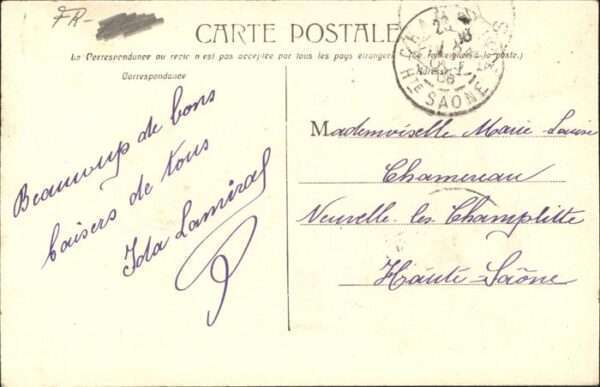 FR-
CARTE POSTALE
La Correspondance au recto n'est pas acceptée par tous les pays étrangers
poste.)
Correspondance
Hte SAONE
Beaucoup de bons
baisers de tous
Ida Lamiral
Mademoiselle Marie Louise
Chamereau
Neuvelle-les-Champlitte
Haute-Saône